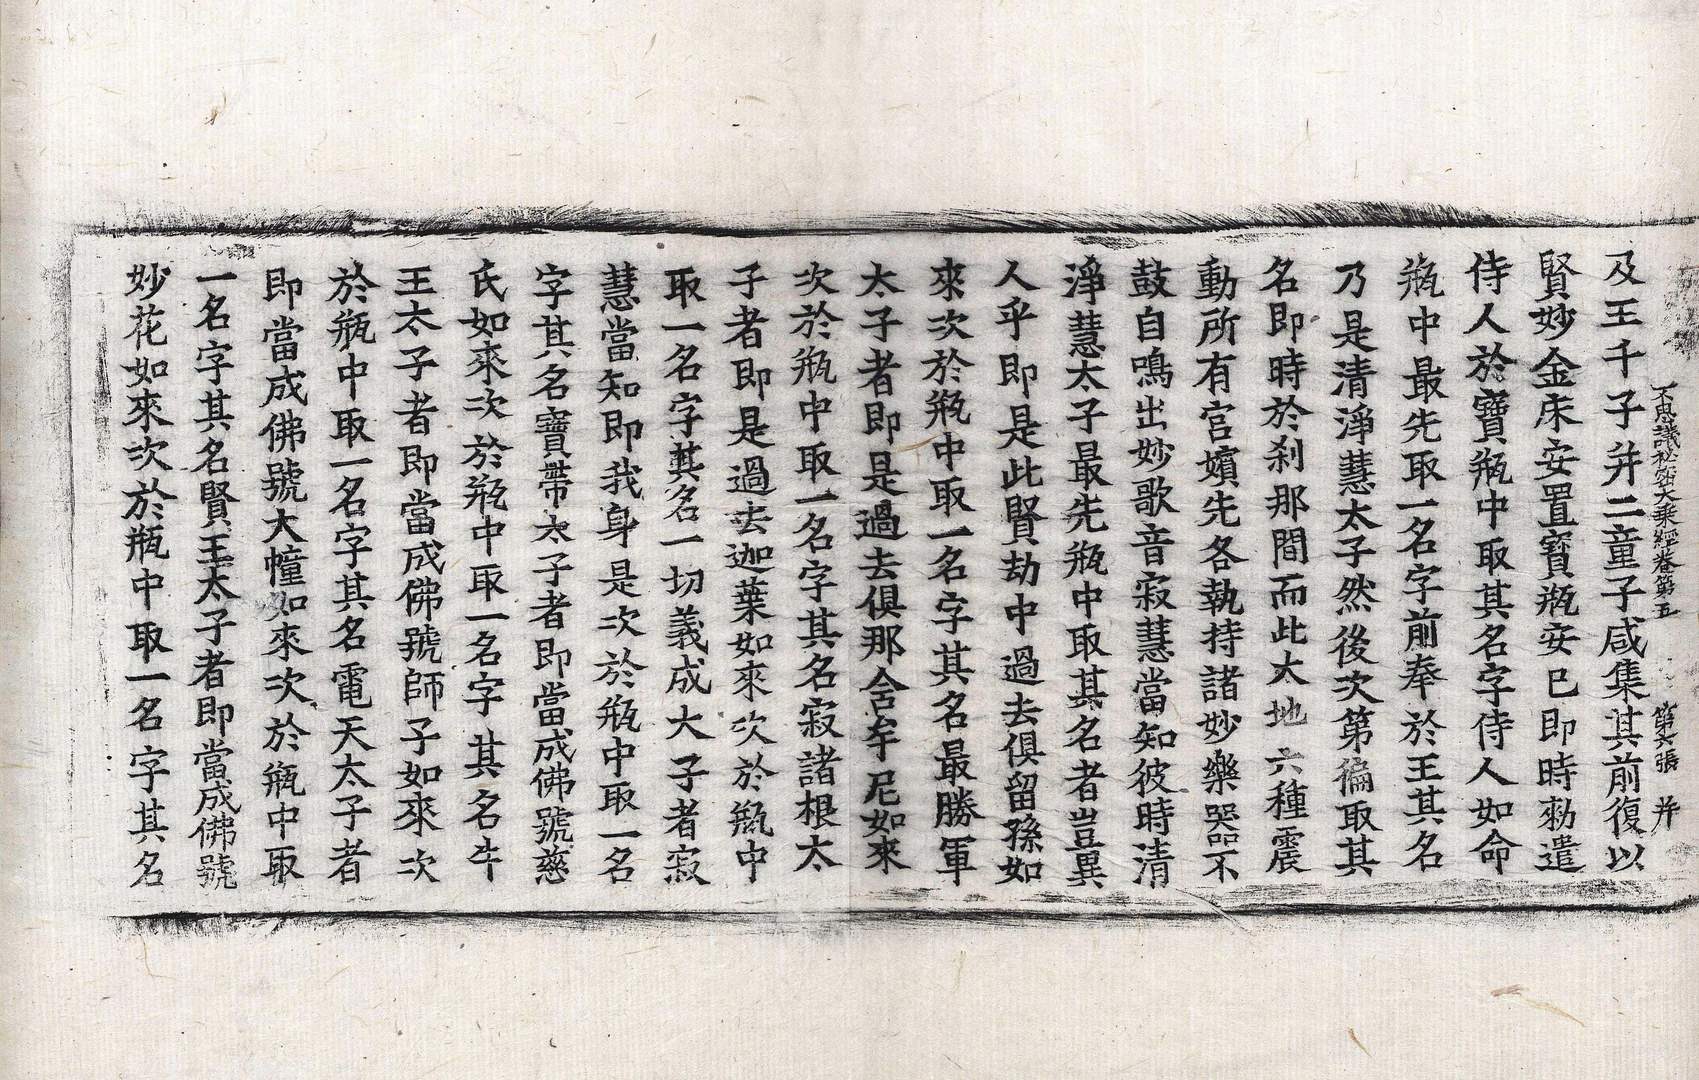 不思議祕密大乘經卷第五　第六張　并
及王千子并二童子咸集其前復以
賢妙金床安置寶瓶安已即時勑遣
侍人於寶瓶中取其名字侍人如命
瓶中最先取一名字前奉於王其名
乃是清淨慧太子然後次第徧取其
名即時於刹那間而此大地六種震
動所有宮嬪先各執持諸妙樂器不
鼓自鳴出妙歌音寂慧當知彼時清
淨慧太子最先瓶中取其名者豈異
人乎即是此賢劫中過去俱留孫如
來次於瓶中取一名字其名最勝軍
太子者即是過去俱那舍牟尼如來
次於瓶中取一名字其名寂諸根太
子者即是過去迦葉如來次於瓶中
取一名字其名一切義成大子者寂
慧當知即我身是次於瓶中取一名
字其名寶帶太子者即當成佛號慈
氏如來次於瓶中取一名字其名牛
王太子者即當成佛號師子如來次
於瓶中取一名字其名電天太子者
即當成佛號大幢如來次於瓶中取
一名字其名賢王太子者即當成佛號
妙花如來次於瓶中取一名字其名